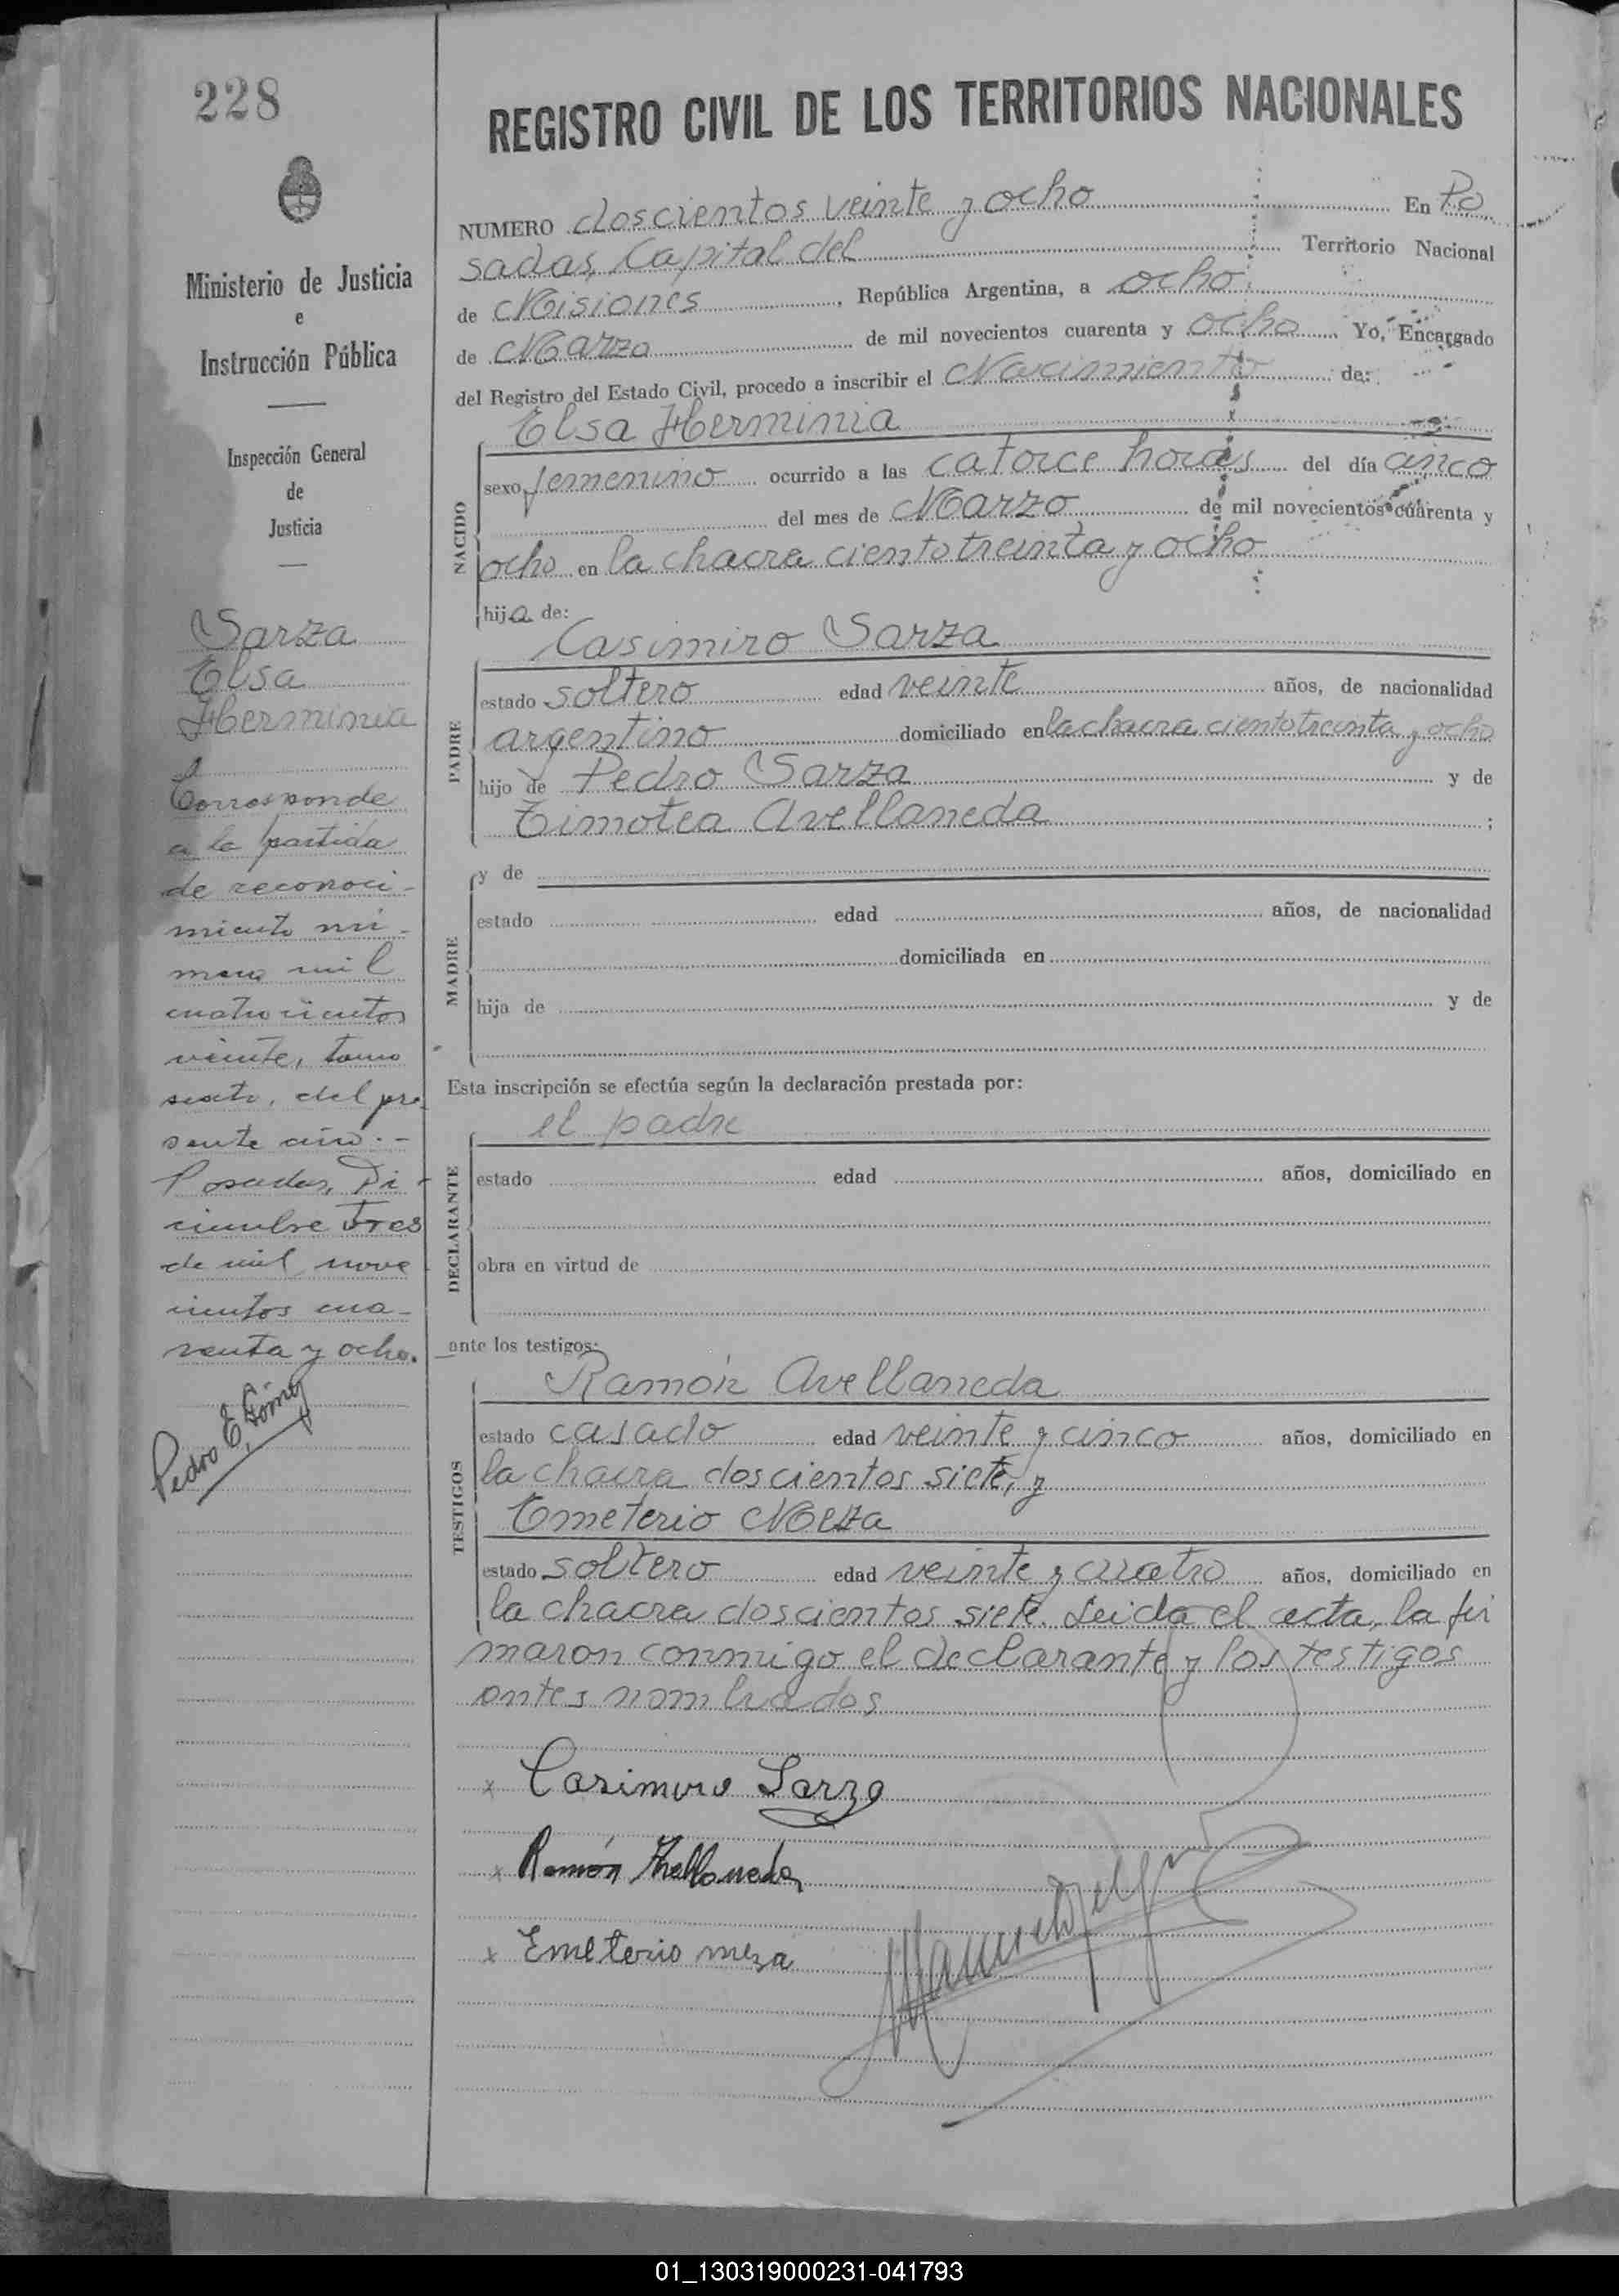 228
Ministerio de Justicia
e
Instrucción Pública
Inspección General
de
Justicia
Sarza
Elsa
Herminia
Corresponde
a la partida
de reconoci-
miento nú-
mero mil
cuatrocientos
veinte, tomo
sexto, del pre
sente año.-
Posadas, Di-
ciembre tres
de mil nove
cientos cua-
renta y ocho.
Pedro E. Gómez
REGISTRO CIVIL DE LOS TERRITORIOS NACIONALES
NUMERO doscientos veinte y ocho En Po
sadas, Capital del Territorio Nacional
de Misiones, República Argentina, a ocho
de Marzo de mil novecientos cuarenta y ocho. Yo, Encargado
del Registro del Estado Civil, procedo a inscribir el Nacimiento de:
Elsa Herminia
NACIDO
sexo femenino ocurrido a las catorce horas del día cinco
del mes de Marzo de mil novecientos cuarenta y
ocho en la chacra ciento treinta y ocho
hija de:
Casimiro Sarza
PADRE
estado soltero edad veinte años, de nacionalidad
argentino domiciliado en la chacra ciento treinta y ocho
hijo de Pedro Sarza y de
Timotea Avellaneda;
y de
MADRE
estado edad años, de nacionalidad
domiciliada en
hija de y de
Esta inscripción se efectúa según la declaración prestada por:
el padre
DECLARANTE
estado edad años, domiciliado en
obra en virtud de
ante los testigos:
Ramón Avellaneda
TESTIGOS
estado casado edad veinte y cinco años, domiciliado en
la chacra doscientos siete, y
Emeterio Meza
estado soltero edad veinte y cuatro años, domiciliado en
la chacra doscientos siete. Leida el acta, la fir
maron conmigo el declarante y los testigos
antes nombrados
x Casimiro Sarza
x Ramón Avellaneda
x Emeterio meza
01_130319000231-041793